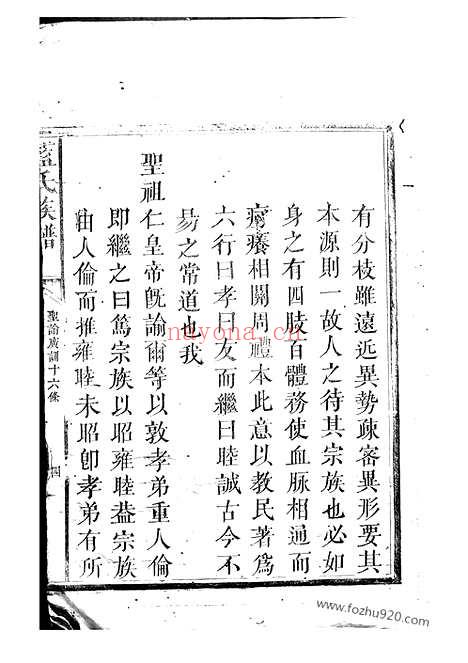 有分枝雖遠近異勢疎密異形要其
本源則一故人之待其宗族也必如
身之有四肢百體務使血脉相通而
痾癢相關周禮本此意以教民著爲
六行曰孝曰友而繼曰睦誠古今不
易之常道也我
聖祖仁皇帝旣諭爾等以敦孝弟重人倫
即繼之曰篤宗族以昭雍睦葢宗族
由人倫而推雍睦未昭卽孝弟有所
藍氏族譜
聖諭廣訓十六條
四
ndyona.cn
www.fozhu920.com